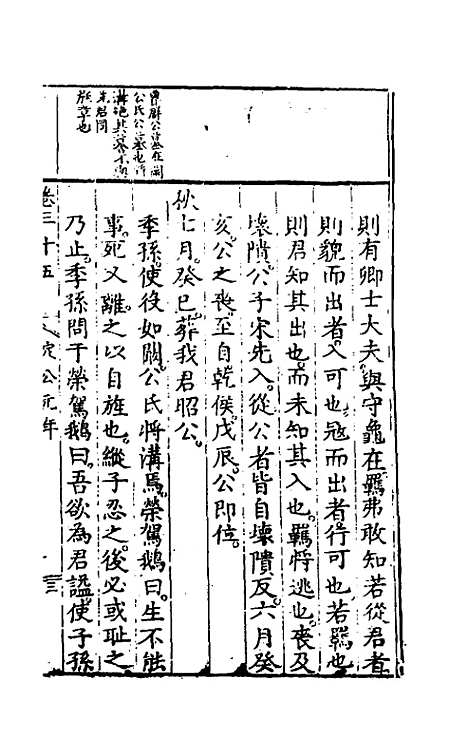 則有卿士大夫與守龜在羈弗敢知若從君者
則貌而出者入可也寇而出者行可也若羈也
則君知其出也而未知其入也羈將逃也喪及
壞隤公子宋先入從公者皆自壞隤反六月癸
亥公之喪至自乾侯戊辰公即位
秋七月癸巳葬我君昭公
季孫使役如闞公氏將溝焉榮駕鵝曰生不能
事死又離之以自旌也縱子忍之後必或恥之
乃止季孫問于榮駕鵝曰吾欲為君謚使子孫
卷三十五
定公元年
魯群公墓在闞
公氏公墓也